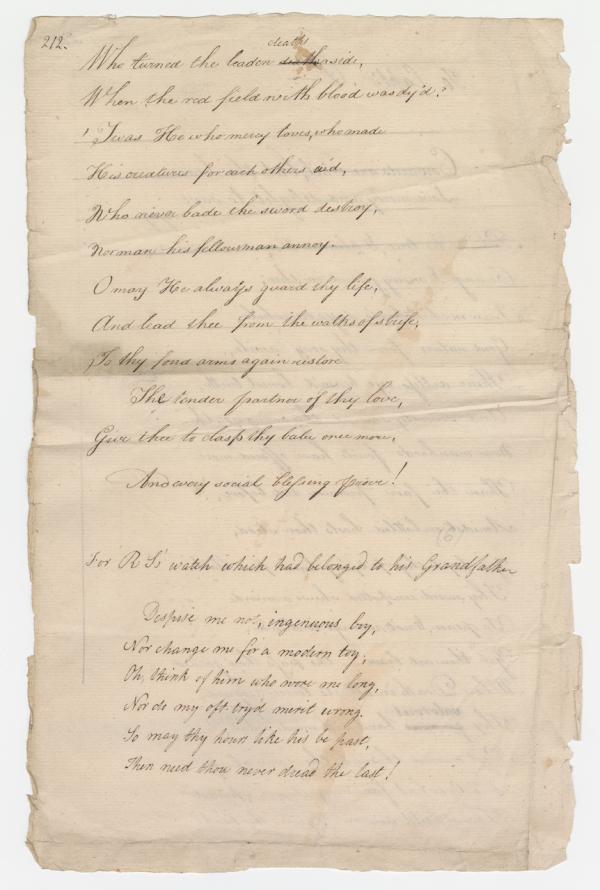 212.
deaths
Who turned the leaden deaths aside,
When the red field with blood was dy'd?
'Twas He who mercy loves, who made
His creatures for each others aid,
Who never bade the sword destroy,
Nor man his fellow man annoy.
O may He always guard thy life,
And lead thee from the walks of strife,
To thy fond arms again restore
The tender partner of thy love,
Give thee to clasp thy babes once more,
And every social blessing prove!
For R S's watch which had belonged to his Grandfather
Despise me not, ingenuous boy,
Nor change me for a modern toy,
Oh, think of him who wore me long,
Nor do my oft-tryd merit wrong.
So may thy hours like his be past,
Then need thou never dread the last!